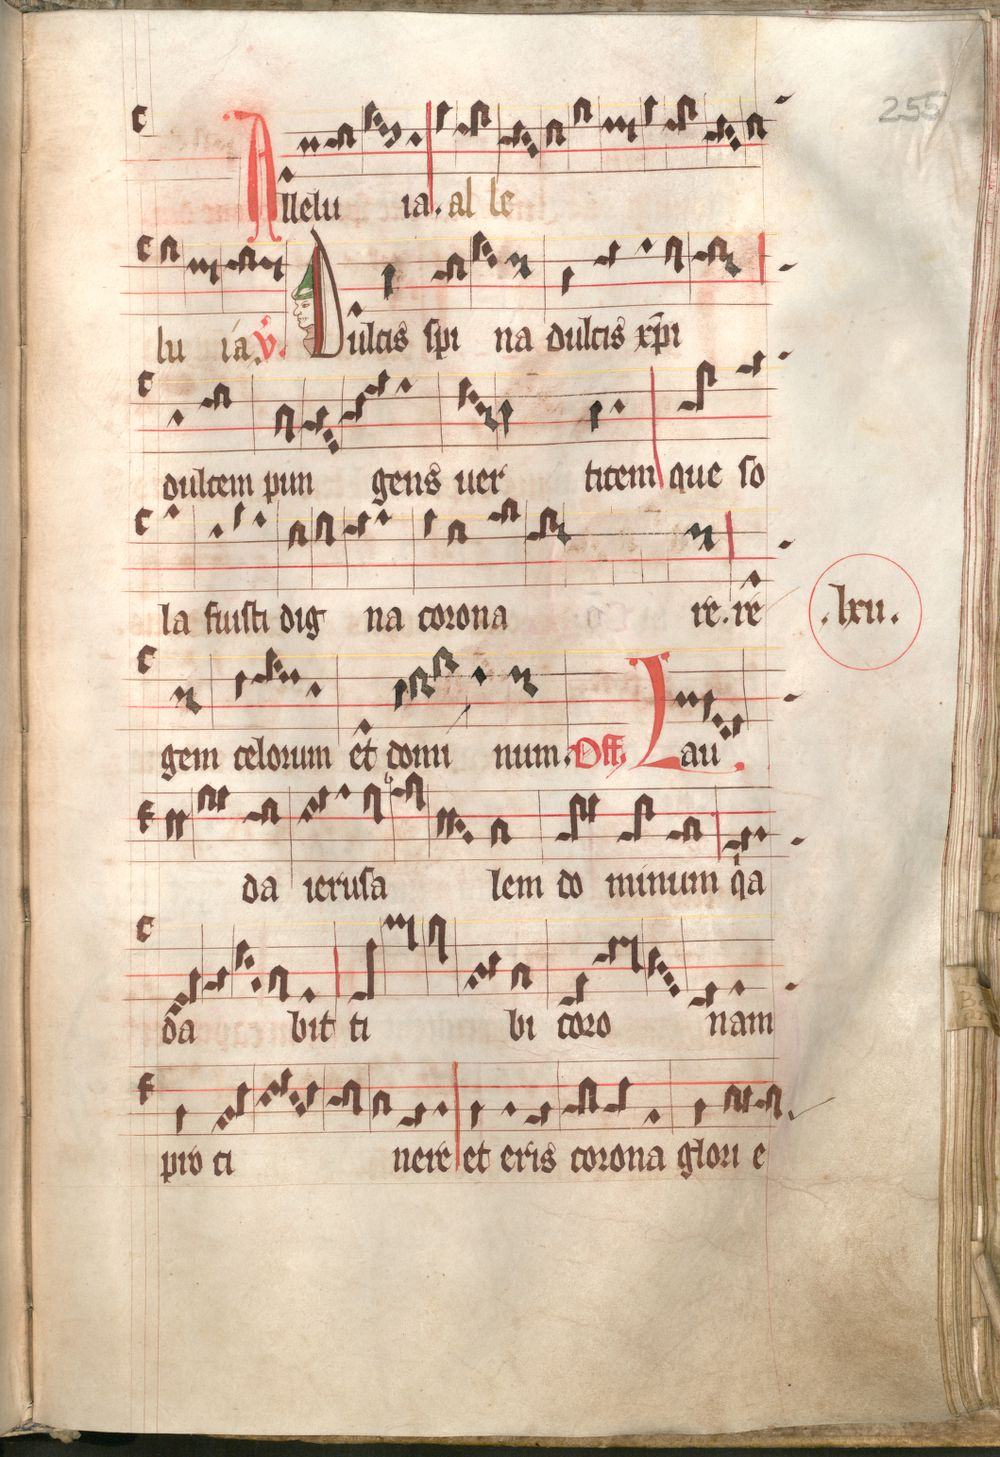 255
Allelu ia. al le
lu ia V. Dulcis spi na dulcis xp̄i
dulcem pun gens uer ticem que so
la fuisti dig na corona re. re
.lxii.
gem celorum et domi num. Off. Lau
da ierusa lem do minum q̇a
da bit ti bi coro nam
pro ci nere et eris corona glori e